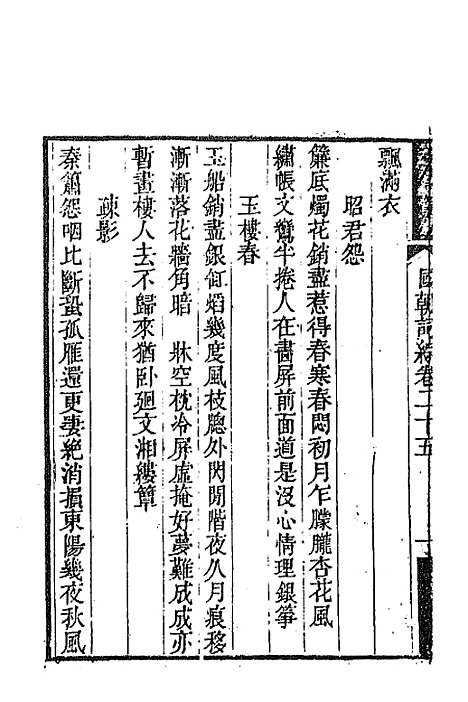 國朝詞綜卷二十五
飄滿衣
昭君怨
簾底燭花銷盡惹得春寒春悶初月乍朦朧杏花風
繡帳文鴛半捲人在畵屏前面道是沒心情理銀箏
玉樓春
玉船銷盡銀釭焰幾度風枝聽外閃閒階夜久月痕移
漸漸落花牆角暗 牀空枕冷屏虛掩好夢難成成亦
暫畫樓人去不歸來猶卧廻文湘縷簟
疎影
秦簫怨咽比斷蛩孤雁還更凄絶消損東陽幾夜秋風